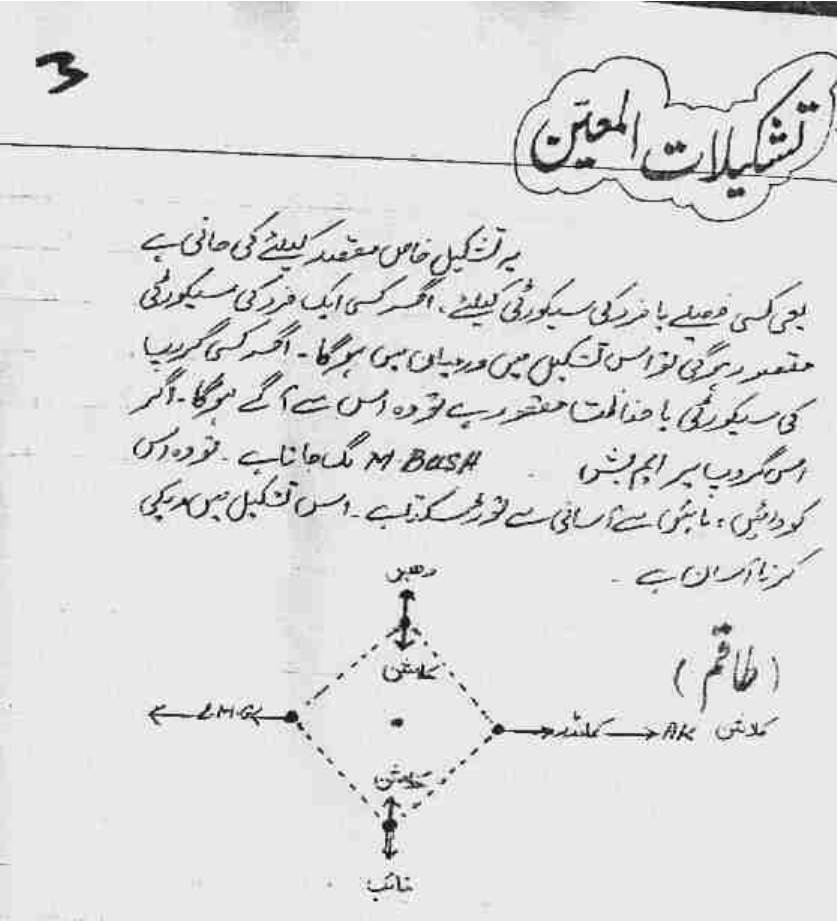 3
تشکیلات المعین
یہ تشکیل خاص مقصد کیلئے کی جاتی ہے
یعی کسی قصیلے یا فرد کی سیکورٹی کیلئے ۔ اگر کسی ایک فرد کی سیکورٹی
مقصد ہوگی تو اس تشکیل میں درمیان میں ہوگا ۔ اگر کسی گروپ
کی سیکورٹی یا حفاظت مقصد ہے تو وہ اس سے آگے ہوگا ۔ اگر
اس گروپ پر ایم بش M BUSH لگ جاتا ہے ۔ تو وہ اس
کو دائیں ، بائیں سے آسانی سے توڑ سکتا ہے ۔ اس تشکیل میں ریکی
کرنا آسان ہے ۔
دھبر
(طاقم)
کلاشن
LMG
کلاشن AK کمانڈر
کلاشن
نائب